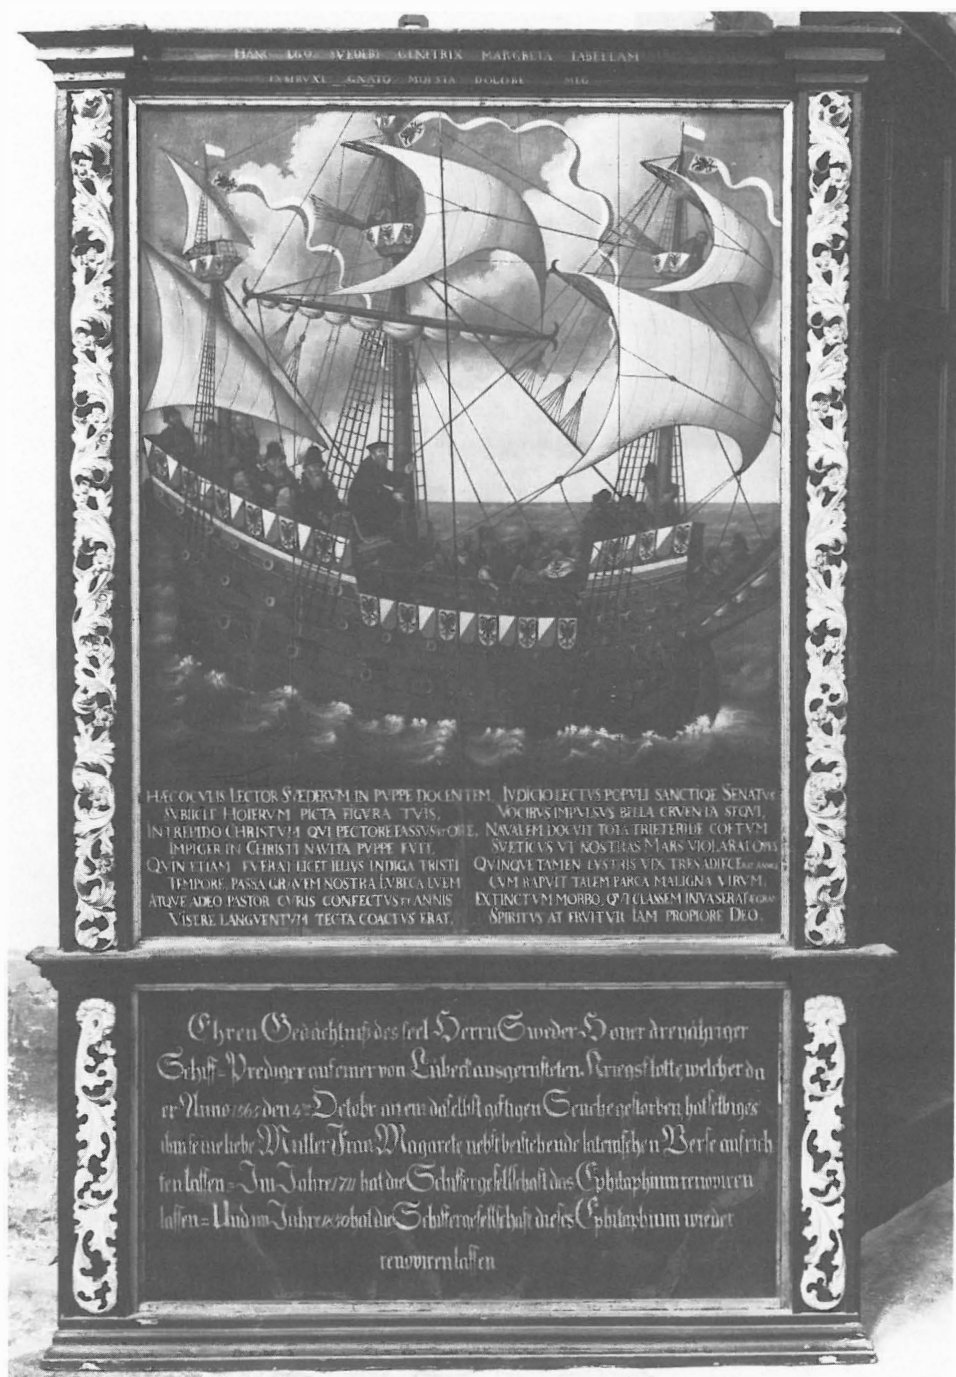 HANC EGO SVEDERI GENETRIX MARGRETA TABELLAM
EXTRVXI GNATO MOESTA DOLORE MEO
HÆC OCVLIS LECTOR SVÆDERVM IN PVPPE DOCENTEM
SVBIICIT HOIERVM PICTA FIGVRA TVIS,
INTREPIDO CHRISTVM QVI PECTORE FASSVS ET ORE,
IMPIGER IN CHRISTI NAVITA PVPPE FVIT.
QVIN ETIAM FVERAT LICET ILLIVS INDIGA TRISTI
TEMPORE, PASSA GRAVEM NOSTRA LVBECA LVEM
ATQVE ADEO PASTOR CVRIS CONFECTVS ET ANNIS
VISERE LANGVENTVM TECTA COACTVS ERAT,
IVDICIO LECTVS POPVLI SANCTIQE SENATVS
VOCIBVS IMPVLSVS BELLA CRVENTA SEQVI,
NAVALEM DOCVIT TOTA TRIETERIDE COETVM
SVETICVS VT NOSTRAS MARS VIOLARAT OPES
QVINQVE TAMEN LVSTRIS VIX TRES ADIECERAT ANNOS
CVM RAPVIT TALEM PARCA MALIGNA VIRVM,
EXTINCTVM MORBO, QVI CLASSEM INVASERAT
SPIRITVS AT FRVITVR IAM PROPIORE DEO.
Ehren Gedächtniß des seel Herrn Sweder Hoyer dreyjähriger
Schiff=Prediger auf einer von Lübeck ausgerüsteten Kriegsflotte, welcher da
er Anno 1565 den 4ten Octobr an einem daselbst giftigen Seuche gestorben, hat selbiges
ihm seine liebe Mutter Frau Magarete nebst bestehende lateinschen Verse aufrich
ten lassen= Im Jahre 1711 hat die Schiffergesellschaft das Ephitaphium renoviren
lassen= Und im Jahre 1830 hat die Schiffergesellschaft dieses Ephitaphium wieder
renoviren lassen